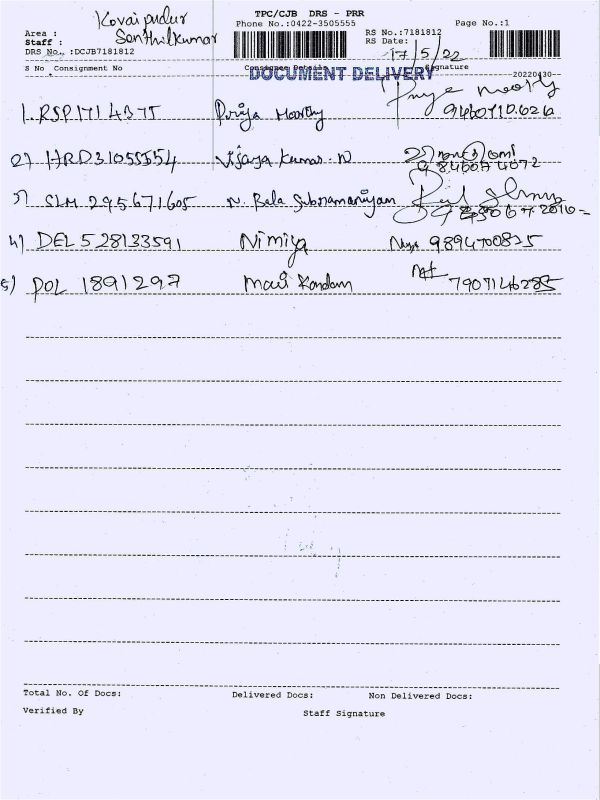 TPC/CJB DRS - PRR
Kovaipudur
Phone No.:0422-3505555 Page No.:1
Area :
Staff : Senthilkumar
RS No.:7181812
RS Date: 17/5/22
DRS No. :DCJB7181812
S No Consignment No Consignee Details Signature
DOCUMENT DELIVERY
20220430
1. RSP171 4375 Priya Moorthy Priya Moorthy
2) HRD31055554 Vijaya Kumar. N
9846074072
3) SLM 295671605 N. Bala Subramaniyam
4) DEL 528133591 Nimiya 9894700825
5) POL 1891297 Mani Kandan 7907146285
Total No. Of Docs: Delivered Docs: Non Delivered Docs:
Verified By Staff Signature